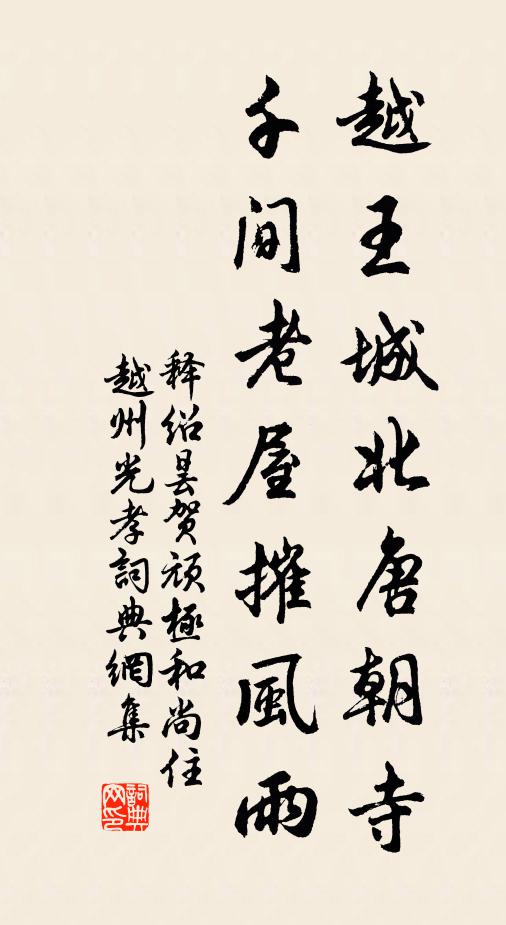 越王城北唐朝寺
千间老屋摧風雨
释绍昙贺顽極和尚住
越州光孝詞典網集
詞典網印